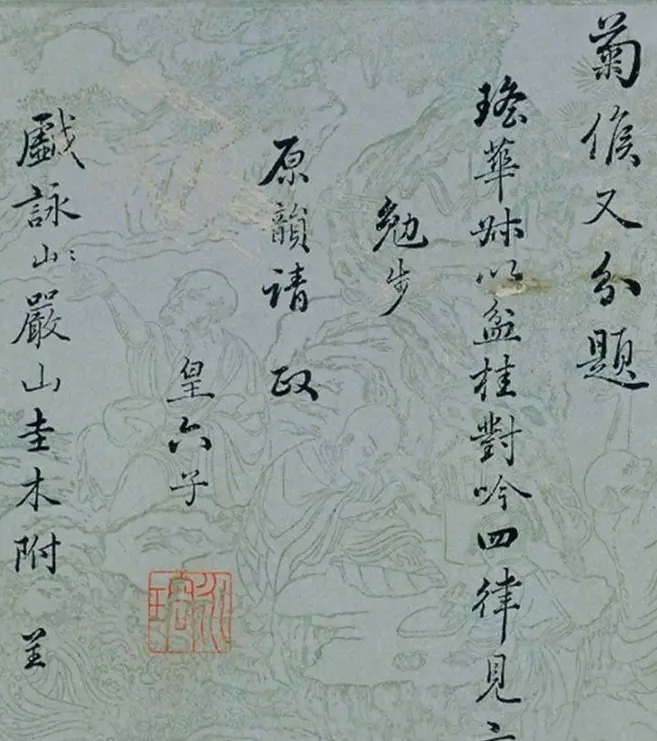 菊候又分題
瑤華姊以盆桂對吟四律見
勉步
原韻請政
皇六子
戲詠山山嚴山圭木附呈